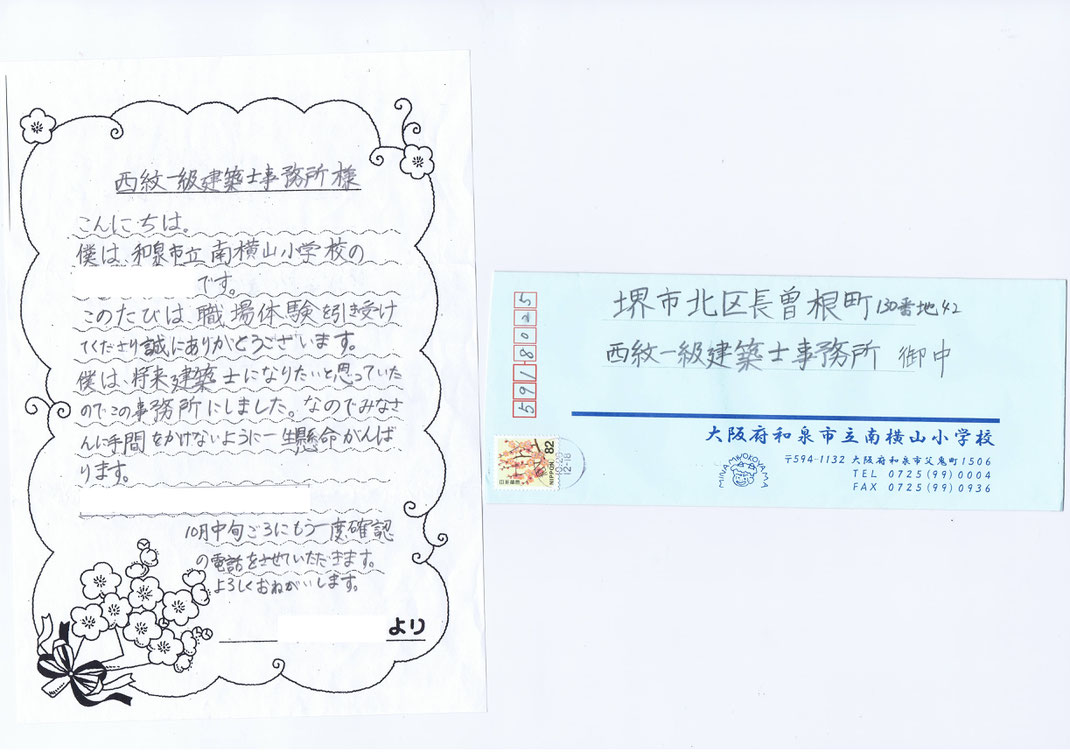 西紋一級建築士事務所様
こんにちは。
僕は、和泉市立南横山小学校の
です。
このたびは、職場体験を引き受け
てくださり誠にありがとうございます。
僕は、将来建築士になりたいと思っていた
のでこの事務所にしました。なのでみなさ
んに手間をかけないように一生懸命がんば
ります。
10月中旬ごろにもう一度確認
の電話をさせていただきます。
よろしくおねがいします。
より
5918025
堺市北区長曽根町130番地42
西紋一級建築士事務所 御中
大阪府和泉市立南横山小学校
〒594-1132 大阪府和泉市父鬼町1506
TEL 0725(99)0004
FAX 0725(99)0936
MINAMIYOKOYAMA
82
NIPPON
日本郵便
12-18